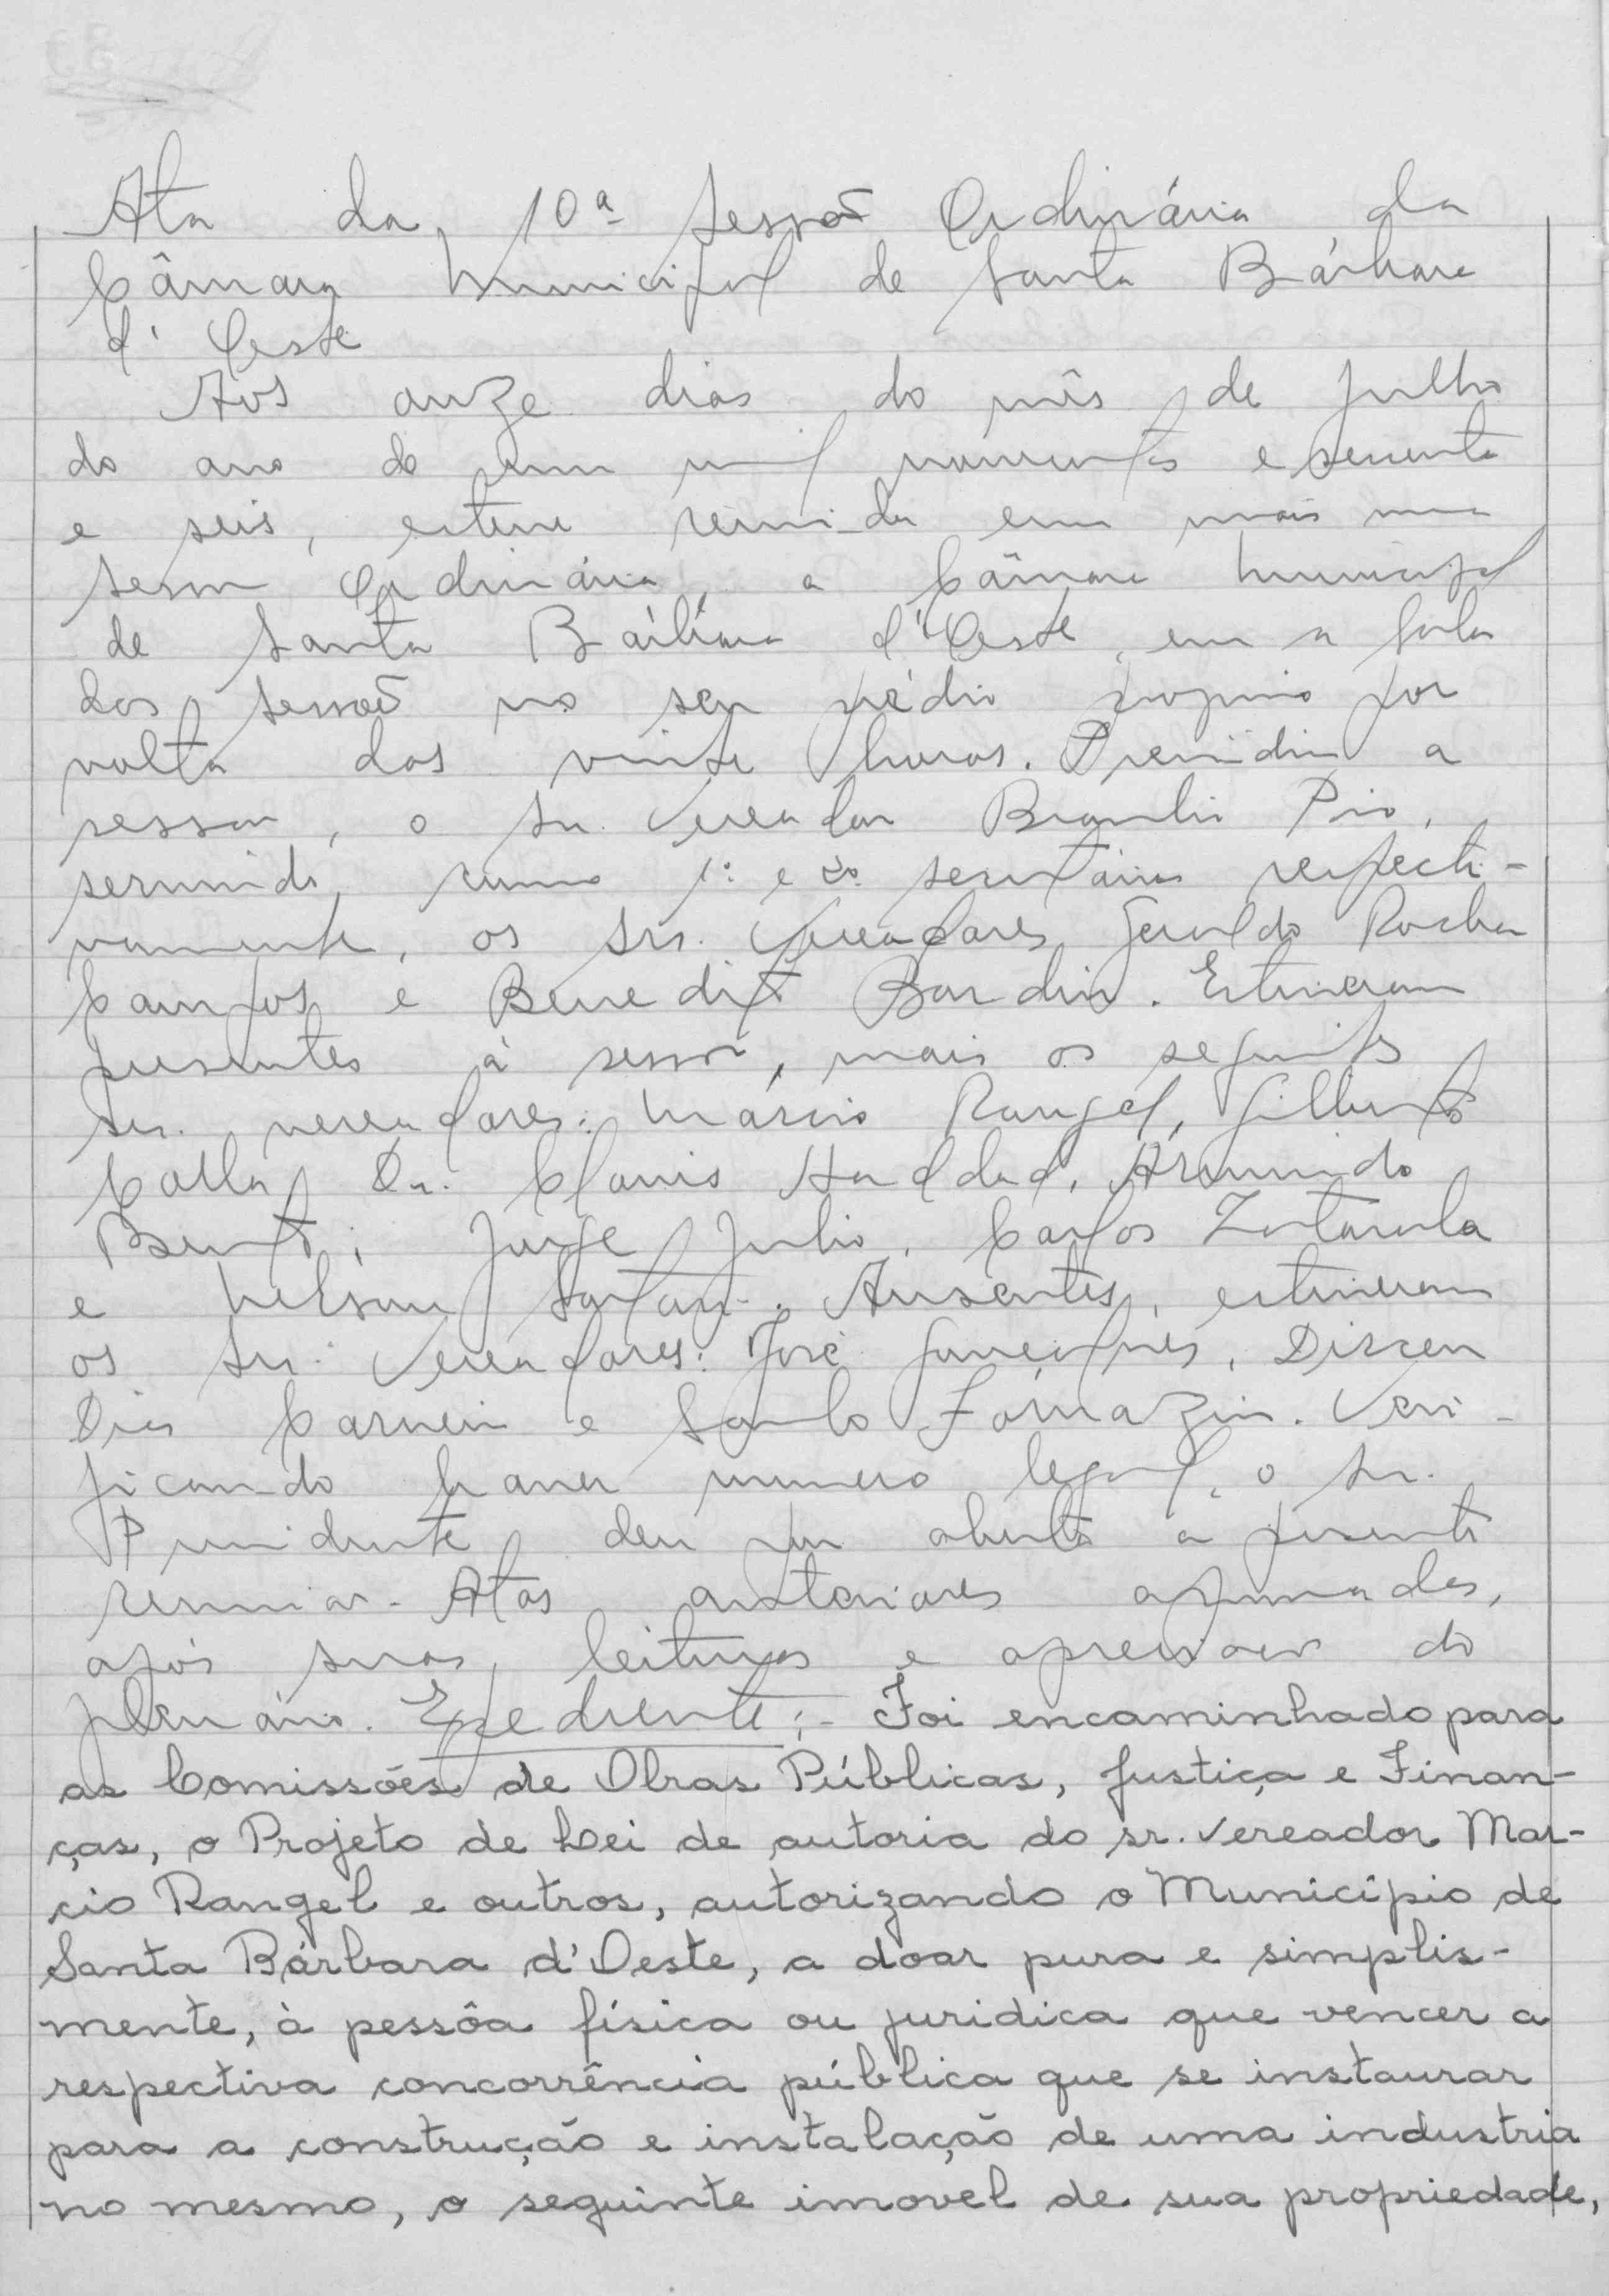 Ata da 10ª Sessão Ordinária da
Câmara Municipal de Santa Bárbara
d'Oeste
Aos onze dias do mês de julho
do ano de um mil novecentos e sessenta
e seis, esteve reunida em mais uma
sessão Ordinária, a Câmara Municipal
de Santa Bárbara d'Oeste, em a sala
das sessões no seu prédio proprio por
volta das vinte horas. Presidiu a
sessão, o Sr. Vereador Braulio Pio,
servindo, como 1º e 2º secretários respecti-
vamente, os Srs. Vereadores Geraldo Rocha
Campos e Benedito Bordin. Estiveram
presentes à sessão, mais os seguintes
Srs. vereadores: Márcio Rangel, Gilberto
Dr. Clovis Haddad, Armindo
Jorge Julio, Carlos
e Nelson Ausentes, estiveram
os Srs. Vereadores: José Dirceu
Dias Carneiro e Fornazin. Veri-
ficando haver numero legal, o Sr.
Presidente, deu por aberta a presente
reunião. Atas anteriores aprovadas,
após suas leituras e apreciações do
plenário. Expediente:- Foi encaminhado para
as Comissões de Obras Públicas, Justiça e Finan-
ças, o Projeto de Lei de autoria do sr. Vereador Mar-
cio Rangel e outros, autorizando o Município de
Santa Bárbara d'Oeste, a doar pura e simplis-
mente, à pessôa física ou juridica que vencer a
respectiva concorrência pública que se instaurar
para a construção e instalação de uma industria
no mesmo, o seguinte imovel de sua propriedade,